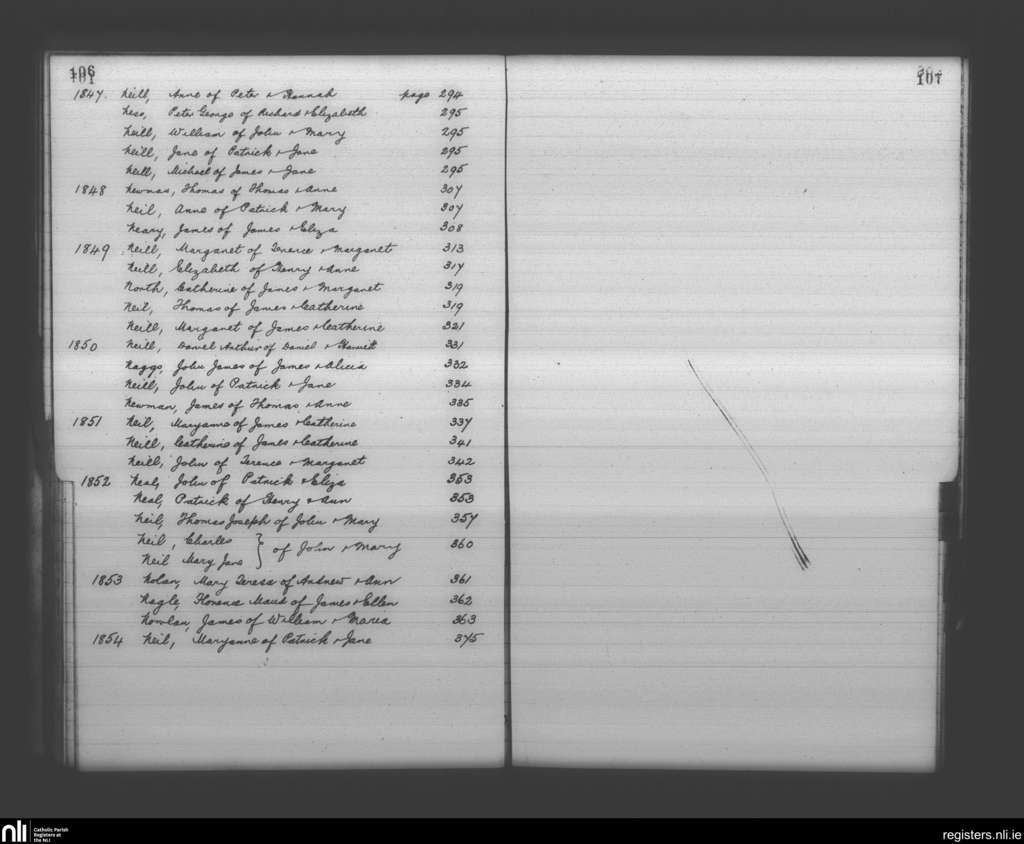 106
107
1847. Neill, Anne of Peter & Hannah page 294
Ness, Peter George of Richard & Elizabeth 295
Neill, William of John & Mary 295
Neill, Jane of Patrick & Jane 295
Neill, Michael of James & Jane 295
1848 Newman, Thomas of Thomas & Anne 307
Neil, Anne of Patrick & Mary 307
Neary, James of James & Eliza 308
1849 Neill, Margaret of Terence & Margaret 313
Neill, Elizabeth of Henry & Anne 317
North, Catherine of James & Margaret 319
Neil, Thomas of James & Catherine 319
Neill, Margaret of James & Catherine 321
1850 Neill, Daniel Arthur of Daniel & Harriett 331
Naggs, John James of James & Alicia 332
Neill, John of Patrick & Jane 334
Newman, James of Thomas & Anne 335
1851 Neil, Maryanne of James & Catherine 337
Neill, Catherine of James & Catherine 341
Neill, John of Terence & Margaret 342
1852 Neal, John of Patrick & Eliza 353
Neal, Patrick of Henry & Ann 353
Neil, Thomas Joseph of John & Mary 357
Neil, Charles
Neil Mary Jane } of John & Mary 360
1853 Nolan, Mary Teresa of Andrew & Ann 361
Nagle, Florence Maud of James & Ellen 362
Nowlan, James of William & Maria 363
1854 Neil, Maryanne of Patrick & Jane 375
nli
Catholic Parish
Registers at
the NLI
registers.nli.ie